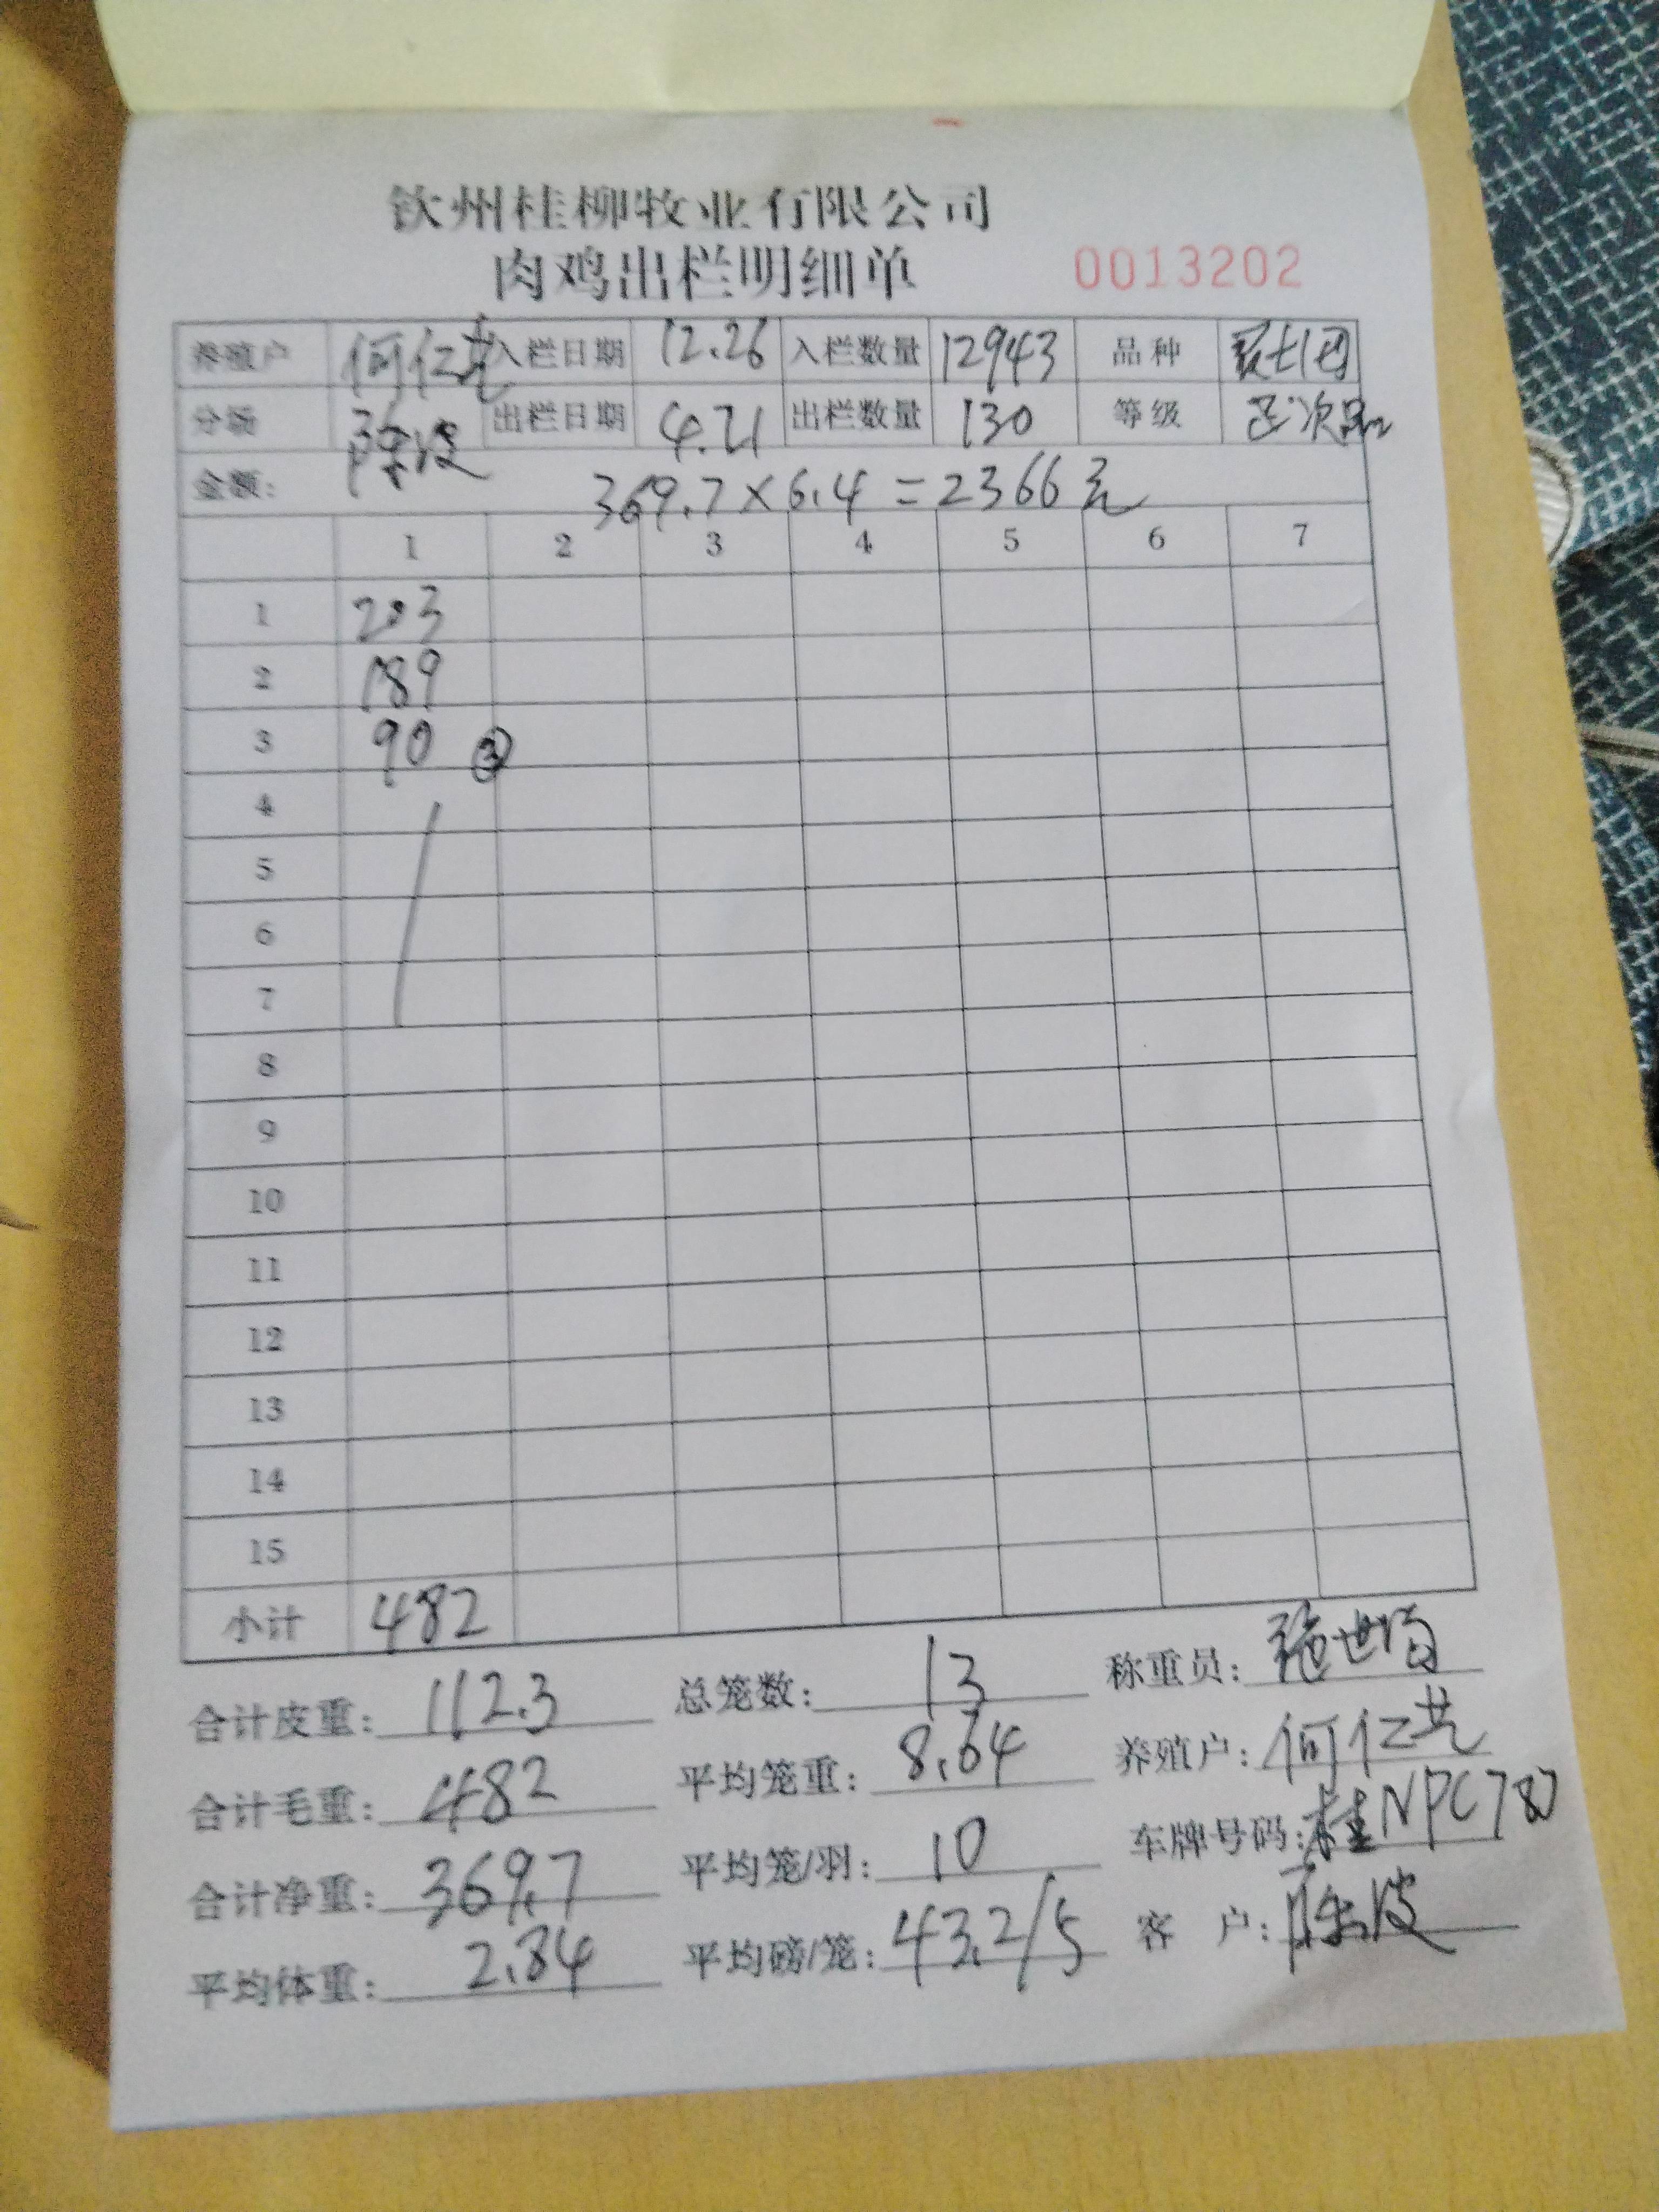 钦州桂柳牧业有限公司
肉鸡出栏明细单 0013202
养殖户 何仁 入栏日期 12.26 入栏数量 12943 品种
分场 陈波 出栏日期 4.21 出栏数量 130 等级 次品
金额: 369.7×6.4=2366元
1 2 3 4 5 6 7
1 203
2 189
3 90 ③
4
5
6
7
8
9
10
11
12
13
14
15
小计 482
合计皮重: 112.3 总笼数: 13 称重员: 世
合计毛重: 482 平均笼重: 8.64 养殖户: 何仁
合计净重: 369.7 平均笼/羽: 10 车牌号码: 桂NPC787
平均体重: 2.84 平均磅/笼: 43.2/5 客 户: 陈波